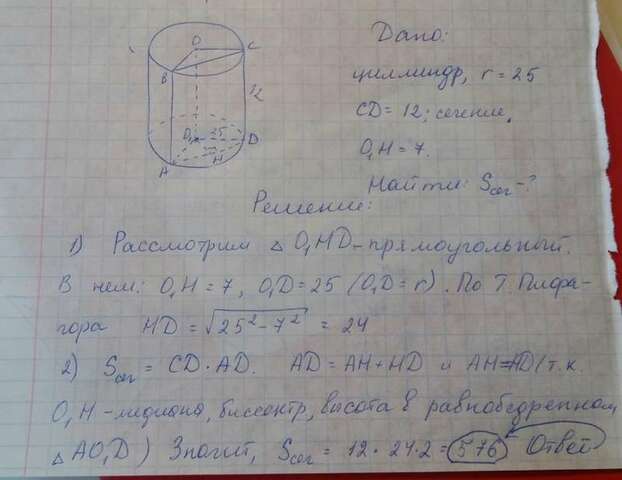 O C
B
12
O₁ 25 D
A H
Дано:
цилиндр, r = 25
CD = 12; сечение.
O₁H = 7.
Найти: Sсеч - ?
Решение:
1) Рассмотрим △ O₁HD - прямоугольный.
В нем: O₁H = 7, O₁D = 25 (O₁D = r). По Т. Пифа-
гора HD = √25² - 7² = 24
2) Sсеч = CD · AD. AD = AH + HD и AH = HD (т.к.
O₁H - медиана, биссектр, высота в равнобедренном
△ AO₁D) Значит, Sсеч = 12 · 24 · 2 = 576 Ответ